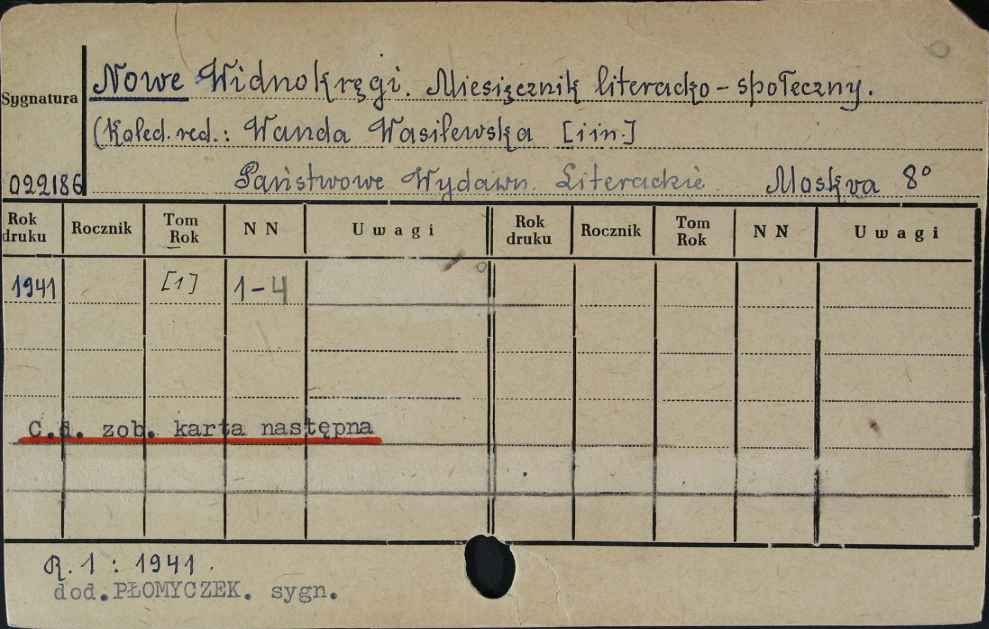 Nowe Widnokręgi. Miesięcznik literacko-społeczny.
Sygnatura
(Koled. red.: Wanda Wasilewska [i in.]
022186 Państwowe Wydawn. Literackie Moskva 8°
Rok druku Rocznik Tom Rok N N Uwagi Rok druku Rocznik Tom Rok N N Uwagi
1941 [1] 1-4
C.d. zob. karta następna
R. 1 : 1941.
dod. PŁOMYCZEK. sygn.